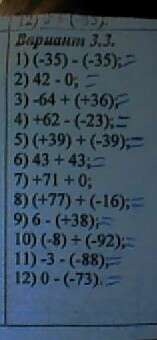 Вариант 3.3.
1) (-35) - (-35);
2) 42 - 0;
3) -64 + (+36);
4) +62 - (-23);
5) (+39) + (-39);
6) 43 + 43;
7) +71 + 0;
8) (+77) + (-16);
9) 6 - (+38);
10) (-8) + (-92);
11) -3 - (-88);
12) 0 - (-73).